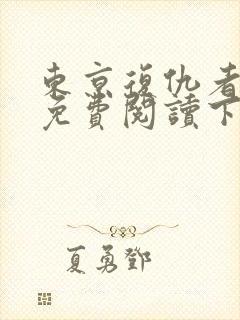 東京復仇者
免費閱讀下
夏勇鄧